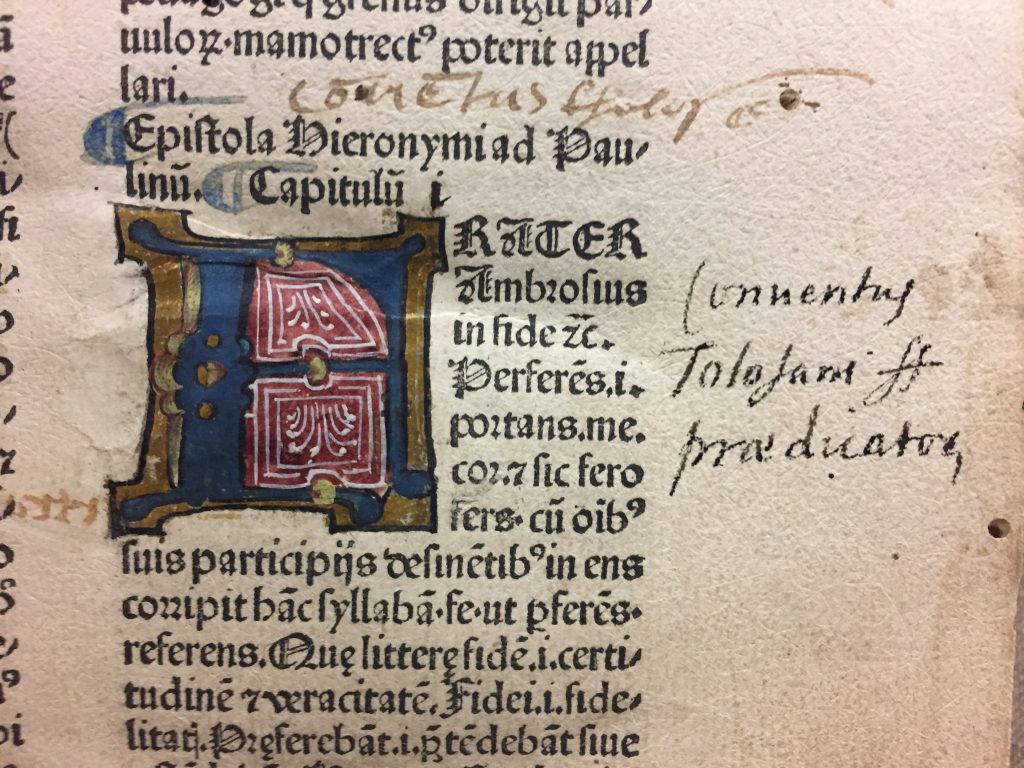 uuloꝝ·mamotrectꝰ poterit appel
lari.
cōvētus tholos
Epistola Hieronymi ad Pau⸗
linū. Capitulū i
RATER
Ambrosius
in fide ⁊c.
Perferēs.i.
portans.me.
cor.⁊ sic fero
fers· cū oibꝰ
suis participijs desinētibꝰ in ens
corripit hāc syllabā·fe·ut ꝑferēs·
referens.Quę litterę fidē.i.certi⸗
tudinē ⁊ veracitatē.Fidei.i.fide⸗
litatį.Pręferebāt.i.p̄tēdebāt siue
Conuentus
Tolosani ff
prædicatoꝝ